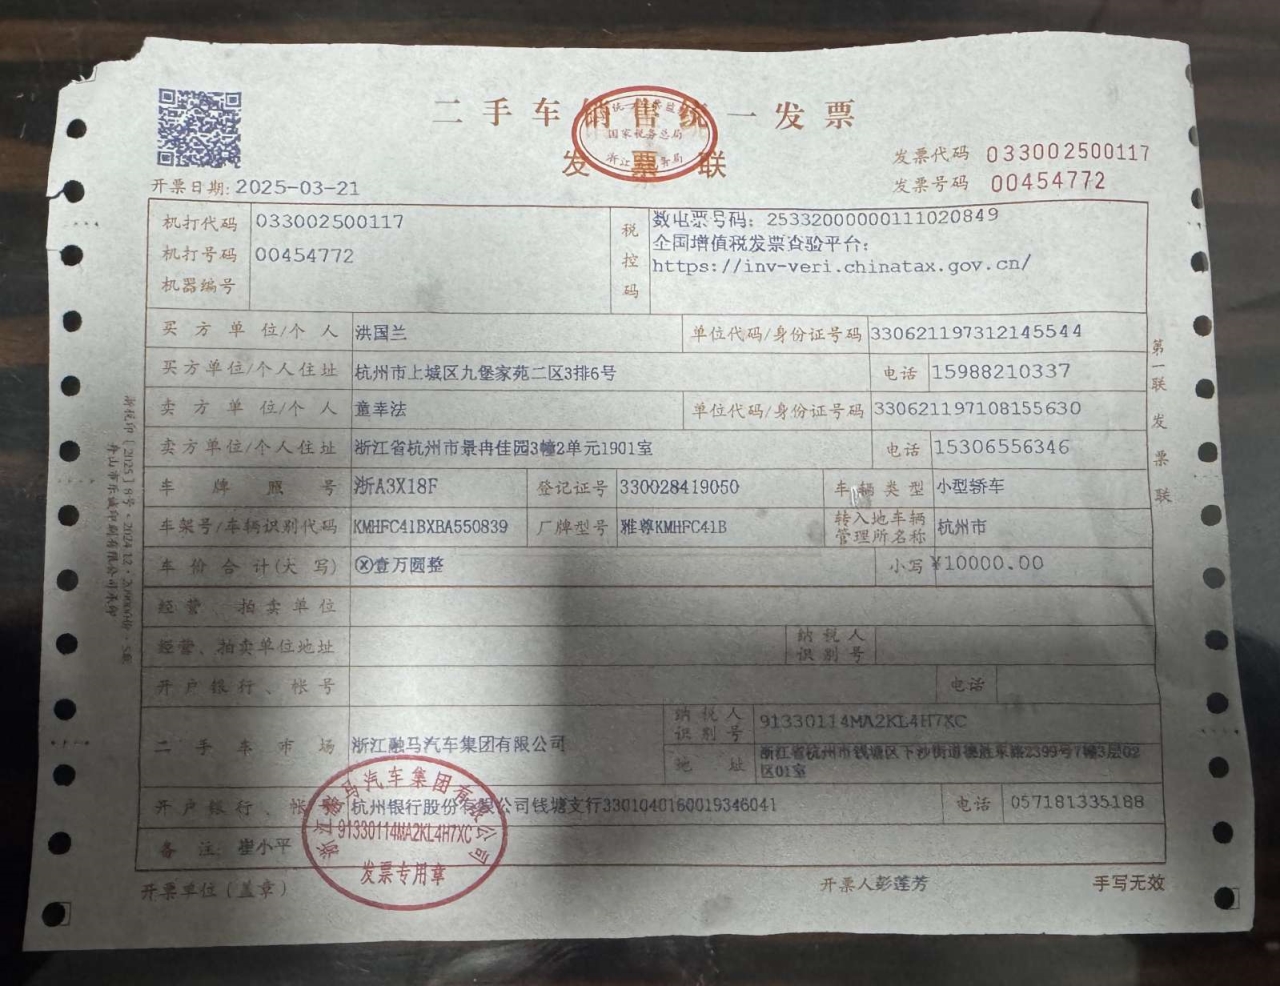 二手车销售统一发票
国家税务总局
发票联
发票代码 033002500117
发票号码 00454772
开票日期: 2025-03-21
机打代码 033002500117
机打号码 00454772
机器编号
税控码
数电票号码: 25332000000111020849
全国增值税发票查验平台:
https://inv-veri.chinatax.gov.cn/
买方单位/个人 洪国兰 单位代码/身份证号码 330621197312145544
买方单位/个人住址 杭州市上城区九堡家苑二区3排6号 电话 15988210337
卖方单位/个人 童幸法 单位代码/身份证号码 330621197108155630
卖方单位/个人住址 浙江省杭州市景冉佳园3幢2单元1901室 电话 15306556346
车牌照号 浙A3X18F 登记证号 330028419050 车辆类型 小型轿车
车架号/车辆识别代码 KMHFC41BXBA550839 厂牌型号 雅尊KMHFC41B 转入地车辆管理所名称 杭州市
车价合计(大写) ⓧ壹万圆整 小写 ¥10000.00
经营、拍卖单位
经营、拍卖单位地址 纳税人识别号
开户银行、帐号 电话
二手车市场 浙江融马汽车集团有限公司 纳税人识别号 91330114MA2KL4H7XC
地址 浙江省杭州市钱塘区下沙街道德胜东路2399号7幢3层02区01室
开户银行、帐号 杭州银行股份有限公司钱塘支行3301040160019346041 电话 057181335188
备注: 崔小平
浙江融马汽车集团有限公司
91330114MA2KL4H7XC
发票专用章
开票单位(盖章) 开票人彭莲芳 手写无效
第一联 发票联